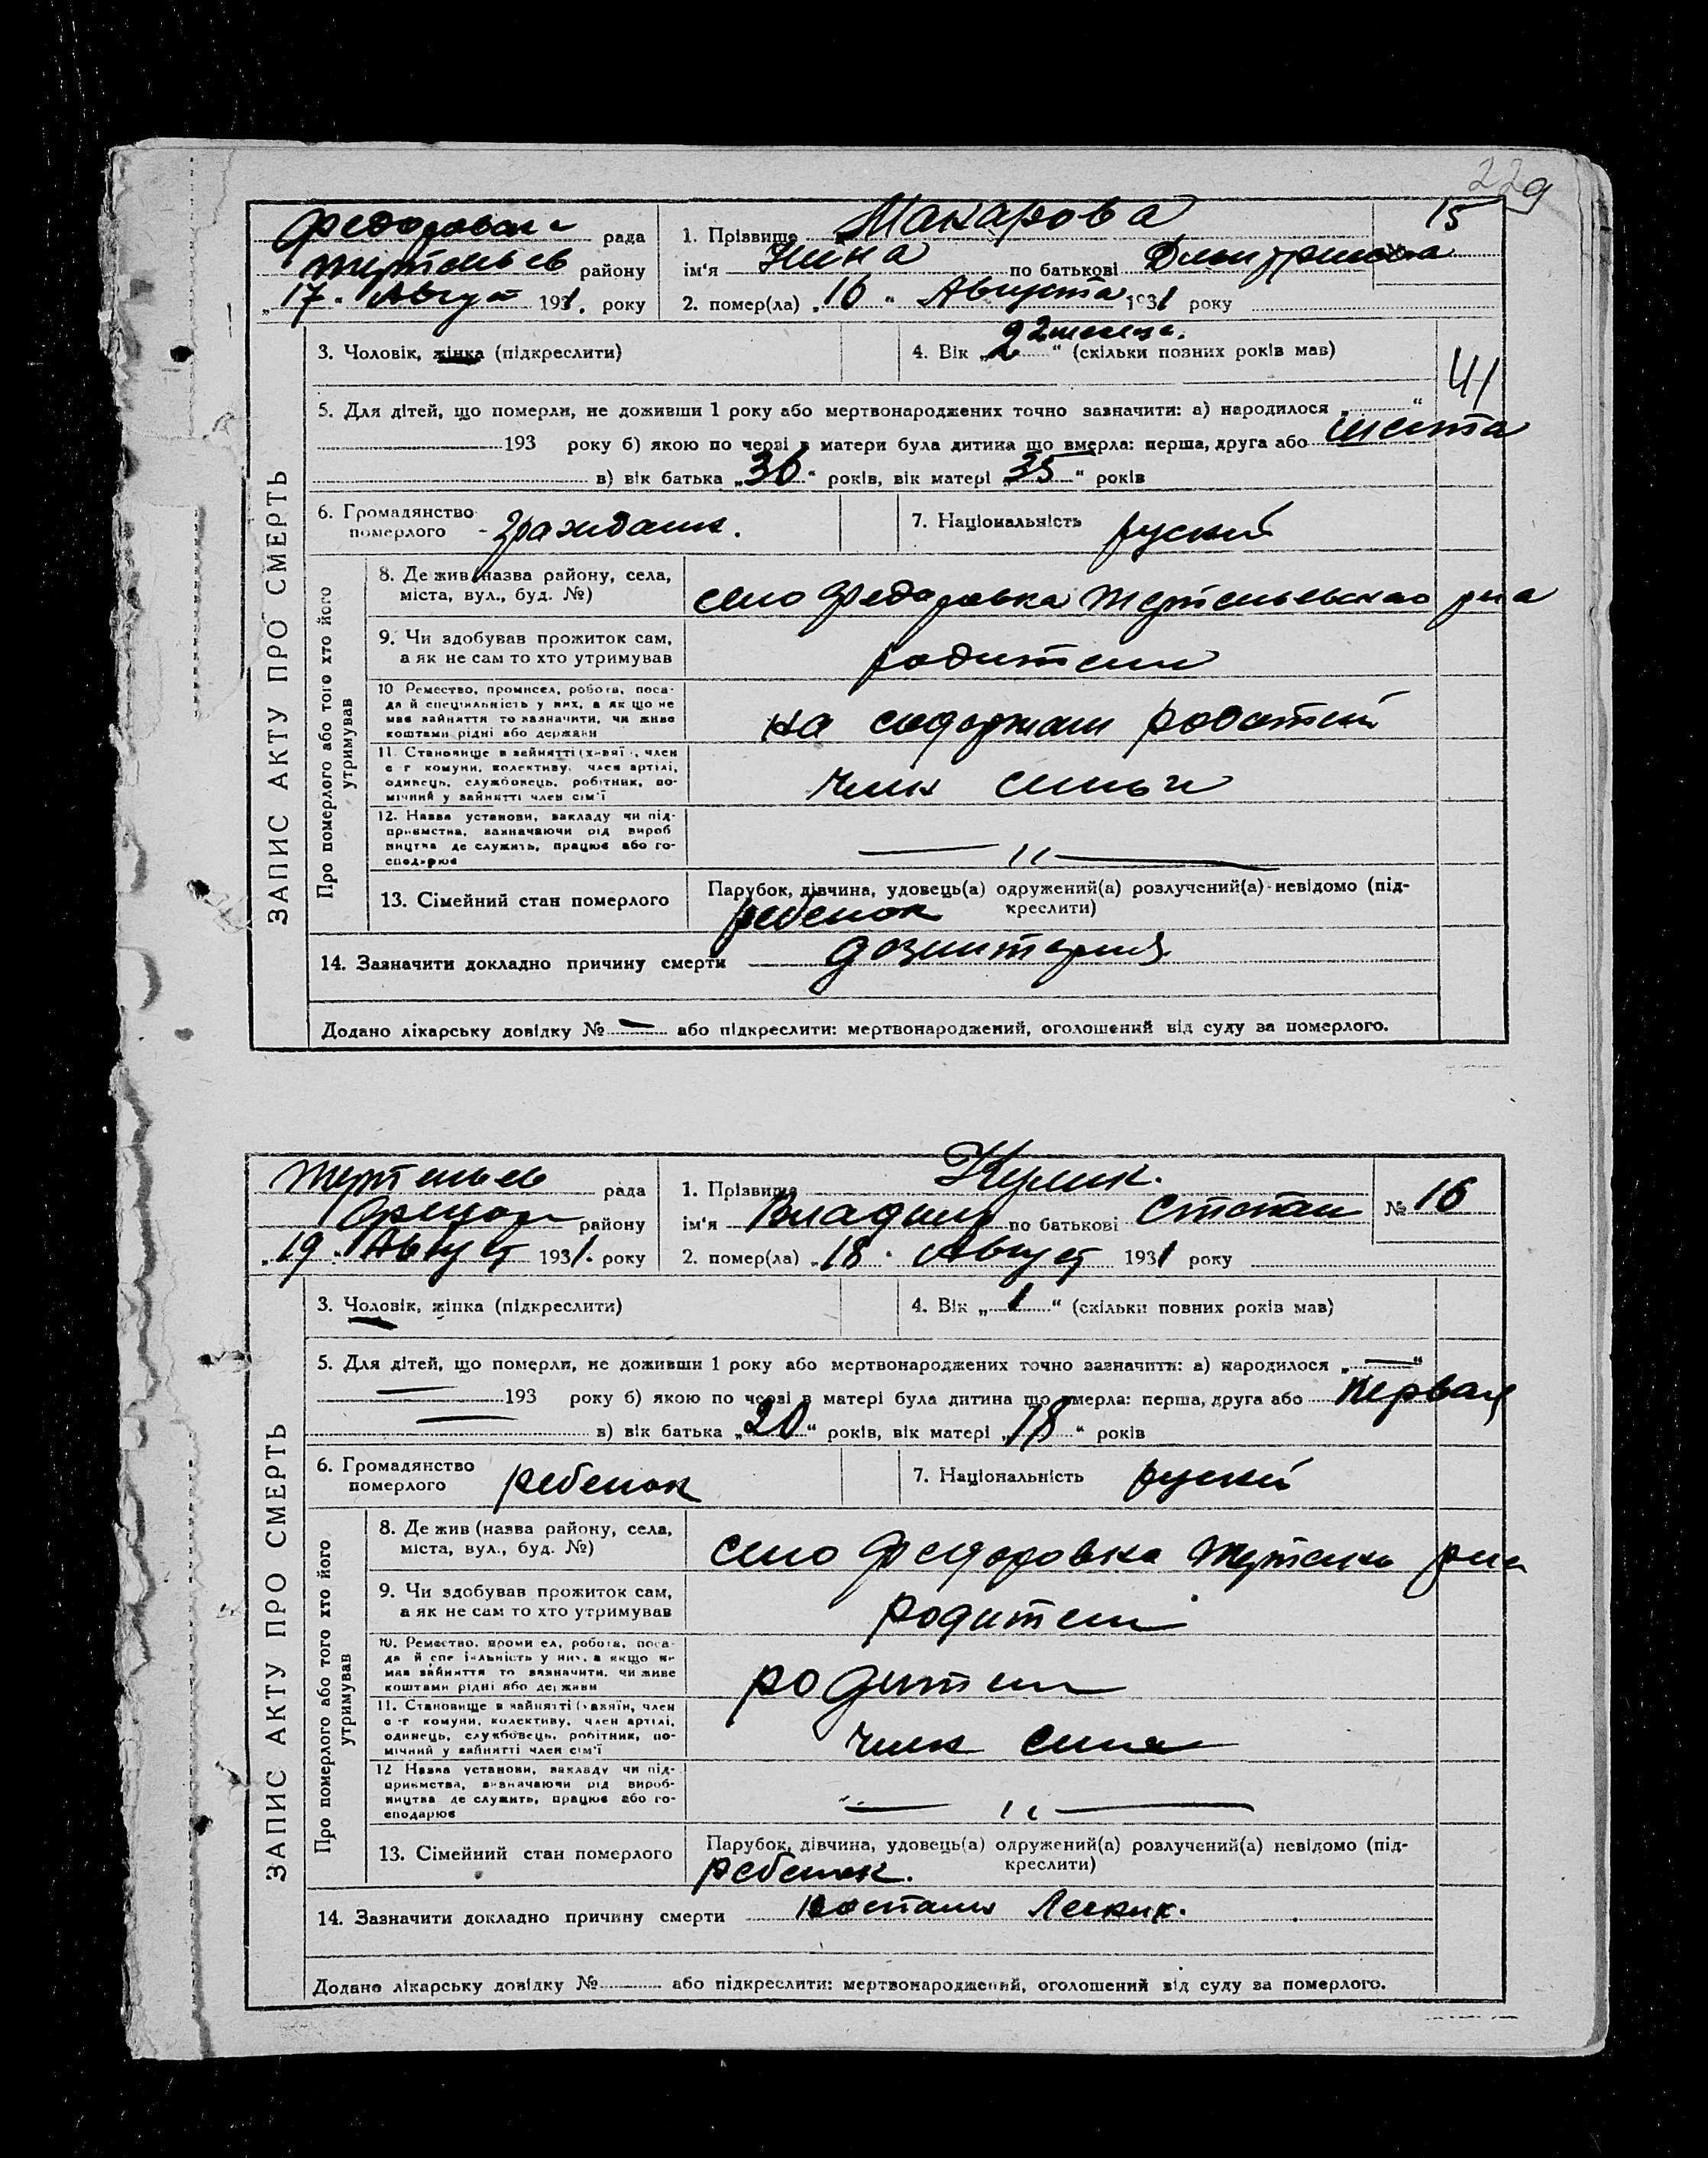 229
Федоровск рада 1. Прізвище Макарова 15
район у ім'я Нина по батькові
„17“ Август 1931. року 2. помер(ла) „16“ Августа 1931 року
3. Чоловік, жінка (підкреслити) 4. Вік „2“ (скільки повних років мав)
41
5. Для дітей, що померли, не доживши 1 року або мертвонароджених точно зазначити: а) народилося „ “
193 року б) якою по черзі в матери була дитина що вмерла: перша, друга або шеста
в) вік батька „36“ років, вік матері „35“ років
6. Громадянство померлого 7. Національність руский
ЗАПИС АКТУ ПРО СМЕРТЬ
Про померлого або того хто його утримував
8. Де жив (назва району, села,
міста, вул., буд. №) село Федоровка рна
9. Чи здобував прожиток сам,
а як не сам то хто утримував родители
10 Ремество, промисел, робота, поса-
да й спеціяльність у них, а як що не
має зайняття то зазначити, чи живе
коштами рідні або держави на
11. Становище в зайнятті (хазяїн, член
с-г комуни, колективу, член артілі,
одинець, службовець, робітник, по-
мічний у зайнятті член сім'ї член семьи
12. Назва установи, закладу чи під-
приємства, зазначаючи рід вироб
ництва де служить, працює або го-
сподарює — „ —
13. Сімейний стан померлого Парубок, дівчина, удовець(а) одружений(а) розлучений(а) невідомо (під-
креслити)
ребенок
14. Зазначити докладно причину смерти дозинтерия
Додано лікарську довідку № — або підкреслити: мертвонароджений, оголошений від суду за померлого.
рада 1. Прізвище Кулик. № 16
району ім'я Владимир по батькові Степан
„19“ Август 1931. року 2. помер(ла) „18“ Август 1931 року
3. Чоловік, жінка (підкреслити) 4. Вік „1“ (скільки повних років мав)
5. Для дітей, що померли, не доживши 1 року або мертвонароджених точно зазначити: а) народилося „—“
— 193 року б) якою по черзі в матері була дитина що вмерла: перша, друга або первая
— в) вік батька „20“ років, вік матері „18“ років
6. Громадянство померлого ребенок 7. Національність руский
ЗАПИС АКТУ ПРО СМЕРТЬ
Про померлого або того хто його утримував
8. Де жив (назва району, села,
міста, вул., буд. №) село Федоровка рна
9. Чи здобував прожиток сам,
а як не сам то хто утримував родители
10. Ремество, промисел, робота, поса-
да й спеціяльність у них, а якщо не
має зайняття то зазначити, чи живе
коштами рідні або держави родители
11. Становище в зайнятті (хазяїн, член
с-г комуни, колективу, член артілі,
одинець, службовець, робітник, по-
мічний у зайнятті член сім'ї член семи
12 Назва установи, закладу чи під-
приємства, зазначаючи рід вироб-
ництва де служить, працює або го-
сподарює — „ —
13. Сімейний стан померлого Парубок, дівчина, удовець(а) одружений(а) розлучений(а) невідомо (під-
креслити)
ребенок.
14. Зазначити докладно причину смерти
Додано лікарську довідку № або підкреслити: мертвонароджений, оголошений від суду за померлого.